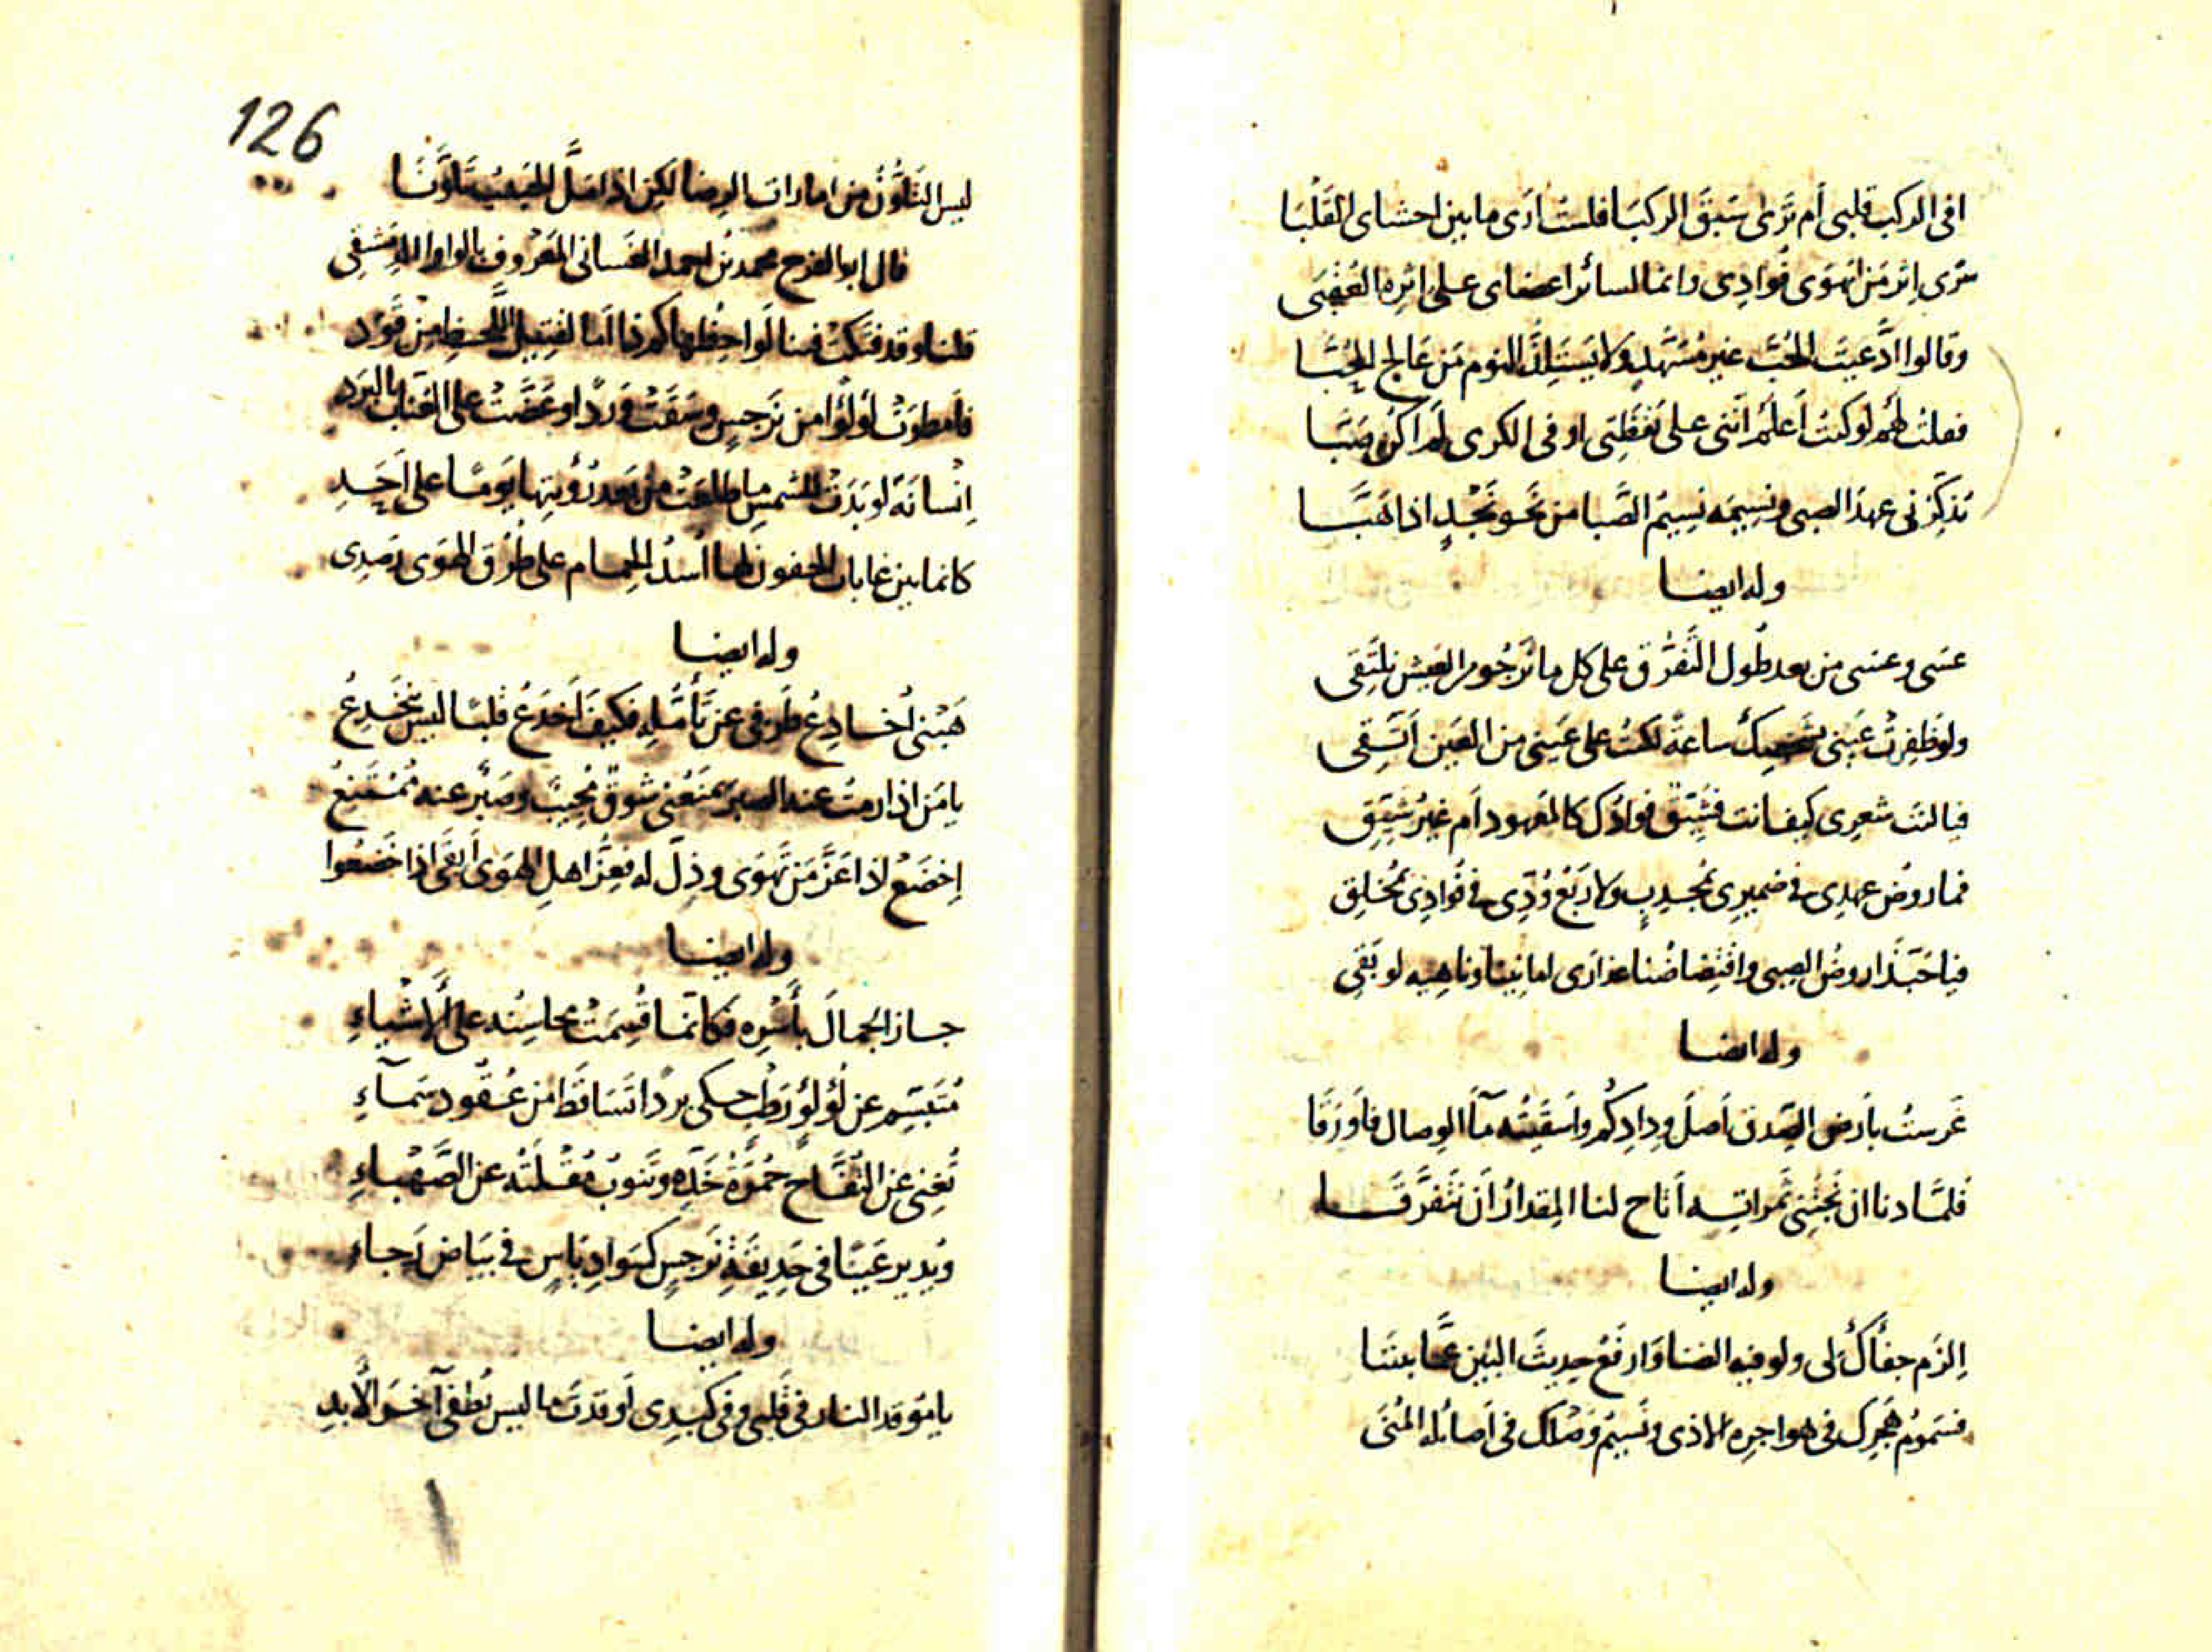 افى الركب قلبى أم تَرى سَبَقَ الركبَا فلستُ ارَى ما بين احشاى القَلْبَا
سَرى اِثر مَن اَهْوَى فُوادِى وانما لسائر اعضاى على اثرِه العُقْبَى
وقالوا ادَّعَيتَ الحُبَّ غير مُسَهَّدٍ ولا يَستَلِذُّ النوم مَن عَالج الحُبَّا
فقلتُ لهُم لو كنتُ أعلَمُ اَنَّنى على يَقظتِى او فى الكرى لَم اكُن صَبَّا
تذكِّرنى عهدَ الصبى ونسِيمَه نسِيمُ الصَّبا من نَحو نَجْدٍ اذا هَبَّا
وله ايضا
عسَى وعسى من بعد طُول التَّفَرُّق على كل ما نَرجُو من العَيش نلتَقِى
ولو ظَفِرتْ عَينى بشخصِكَ ساعةً لكنتُ على عَينى من العَين اَتَّقِى
فيا لَيتَ شعرِى كيف انت فشَيِّقٌ فوادُك كالمَعهود اَم غيرُ شَيِّقِ
فما روضُ عهدِى فى ضميرِى بمُجدِبٍ ولا رَبْعُ وُدِّى فى فُوادِى بمُخلِقِ
فيا حَبَّذا روضُ الصبى وافتِضاضُنا عذارَى لما بيننا وناهِيه لو بَقِى
وله ايضا
غَرستُ بأرضِ الصِّدق اَصلَ وِدادِكُم واَسقَيتُه مآأ الوِصال فاَورَقَا
فلمَّا دنا ان نَجْتَنِى ثَمراتِه اَتاح لنا المِقدارُ اَن نَتَفَرَّقَا
وله ايضا
اِلزَم جفآكَ لى ولو فيه الضنا وَارفَعْ حدِيثَ البَين عَمَّا بيننَا
فسَمُومُ هَجرِك فى هواجرِه الاذى ونَسيمُ وَصْلك فى اَصائله المُنَى
126
ليس التَّلَوُّنُ مِن امارات الرِضا لكِن اذا مَلَّ الحَبيبُ تَلَوَّنَا
قال ابو الفرج محمد بنُ احمد الغَسانى المَعْروف بالواوا الدِمَشقِى
قلنا وقد فتكَتْ فينا لَواحِظُها كم ذا اَما لقتِيل اللَّحظِ مِن قَوَد
فأمطرَتْ لُولُوًا من نَرجِسٍ وسَقَتْ وَرْدًا وعَضَّتْ على العُناب بالبَرَد
اِنسانَةٌ لو بَدَتْ للشمسِ ما طلعَتْ من بَعد رُؤيتِها يَومًا على اَحَدِ
كانما بين غابات الجفون لها اُسدُ الحِمام على طُرْقِ الهَوَى رَصَدِى
وله ايضا
هَبْنى اُخادِعُ طَرفى عن تَأَمُّلِه فكيفَ اَخدَعُ قلبًا ليس يَنخَدِعُ
يا مَن اذا رمتُ عنه الصبرَ يَمنَعُنى شوقٌ مُجيبٌ وصَبْرٌ عنه مُمْتَنِعُ
اِخضَع لذا عَزَّ مَن تَهوَى وذِلَّ له فعِزُّ اهلِ الهَوَى اَنَّى اذا خَضَعُوا
وله ايضا
حاز الجمالَ بأَسْرِه فكأنّما قُسِمَتْ محاسِنُه على الأشْياءِ
مُتَبَسِّم عن لُؤلُؤٍ رَطْبٍ حكى بردًا تَسَاقَطَ من عُقُود سَمآءِ
تُغنِى عن التُّفَّاح حُمْرَةُ خَدِّه وتنوبُ مُقْلَتُه عن الصَّهْباءِ
ويُدير عَينًا فى حَدِيقَةِ نَرجِسٍ كسَوادِ يَاسٍ فى بيَاض رَجاءِ
وله ايضا
يا مُوقدَ النار فى قَلبى وفى كبِدِى اَوقدتَ ما ليس يُطفى آخرَ الأَبدِ